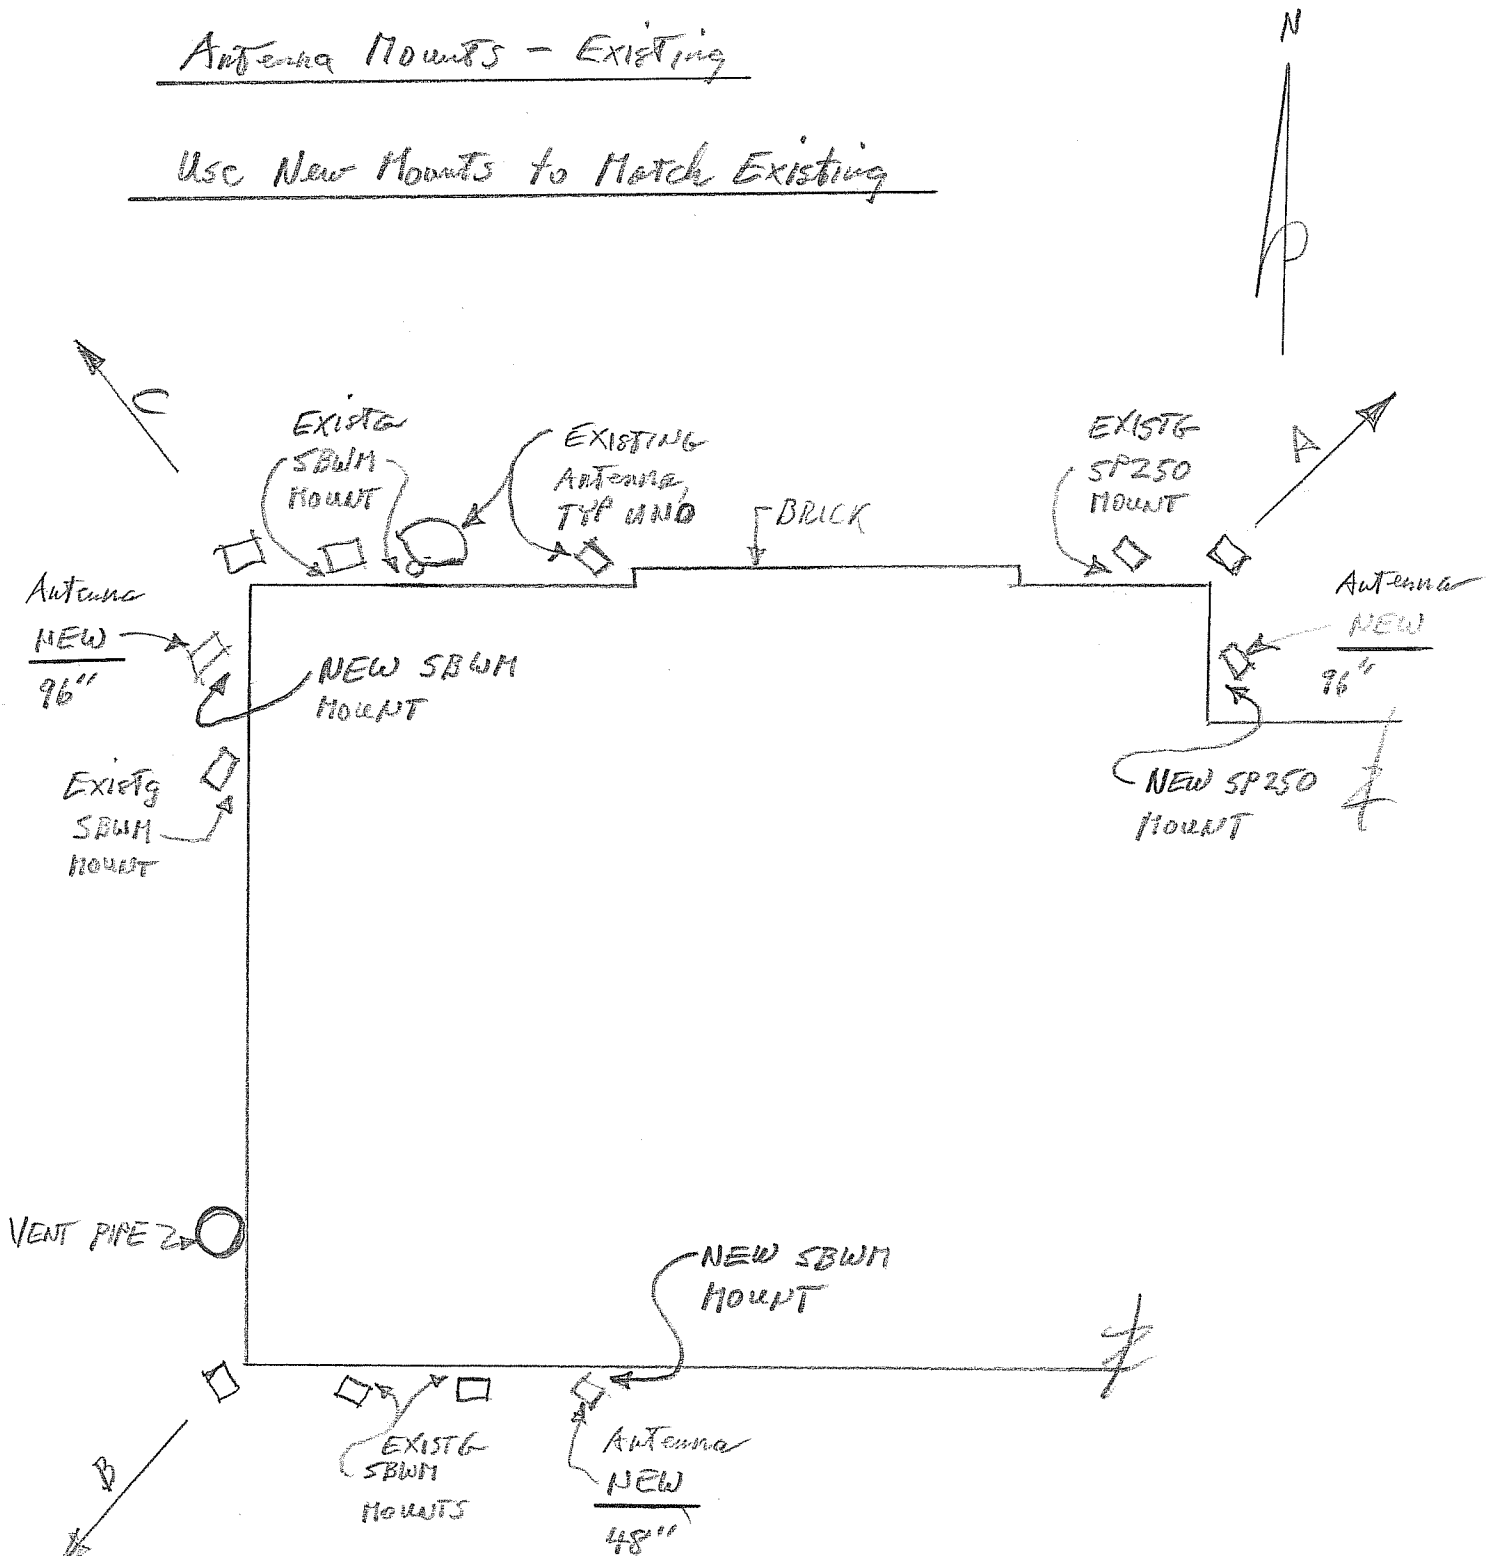 Antenna Mounts - Existing
Use New Mounts to Match Existing
N
C
EXISTG
SBWM
MOUNT
EXISTING
Antenna,
TYP UNO
BRICK
EXISTG
SP250
MOUNT
A
Antenna
NEW
96"
NEW SBWM
MOUNT
Antenna
NEW
96"
Existg
SBWM
MOUNT
NEW SP250
MOUNT
VENT PIPE
NEW SBWM
MOUNT
B
EXISTG
SBWM
MOUNTS
Antenna
NEW
48"